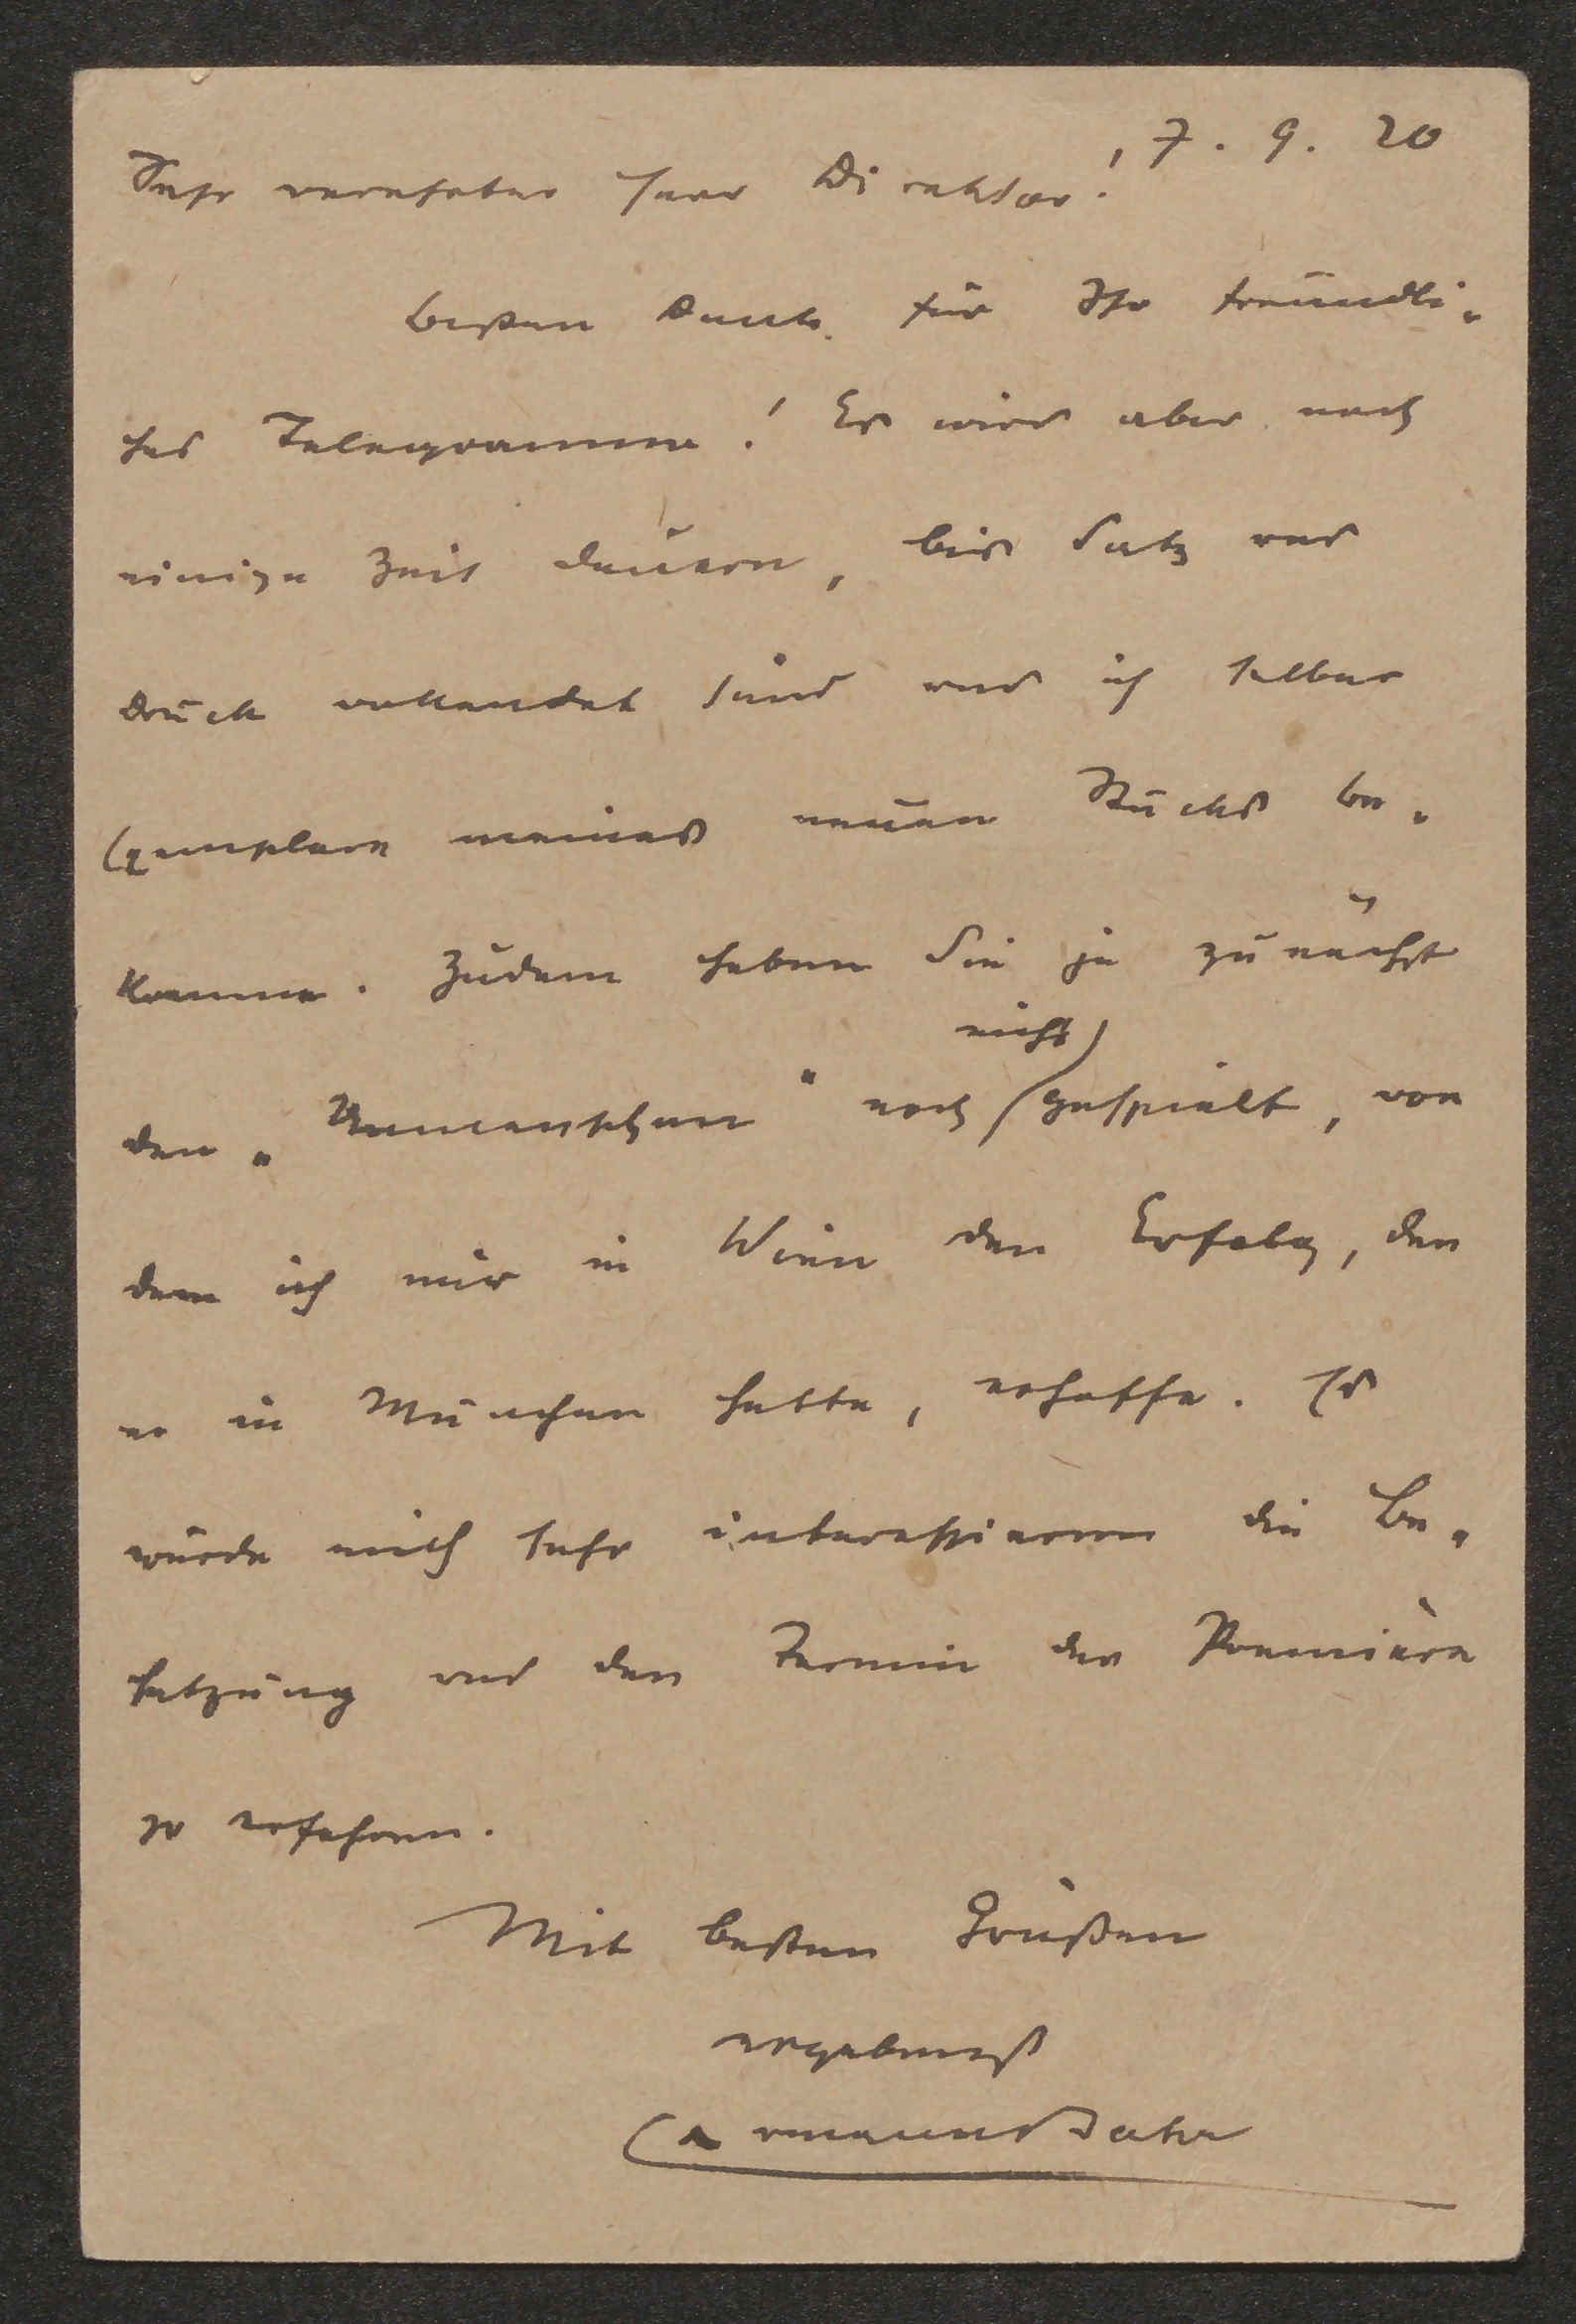 7. 9. 20
Sehr verehrter Herr Direktor!
besten Dank für Ihr freundli-
ches Telegramm! Es wird aber noch
einige Zeit dauern, bis Satz und
Druck vollendet sind und ich selber
Exemplare meines neuen Stücks be-
komme. Zudem haben Sie ja zunächst
nicht
den „Unmenschen" noch gespielt, von
dem ich mir in Wien den Erfolg, den
er in München hatte, erhoffe. Es
würde mich sehr interessieren die Be-
setzung und den Termin der Première
zu erfahren.
Mit besten Grüßen
ergebenst
Hermann Bahr